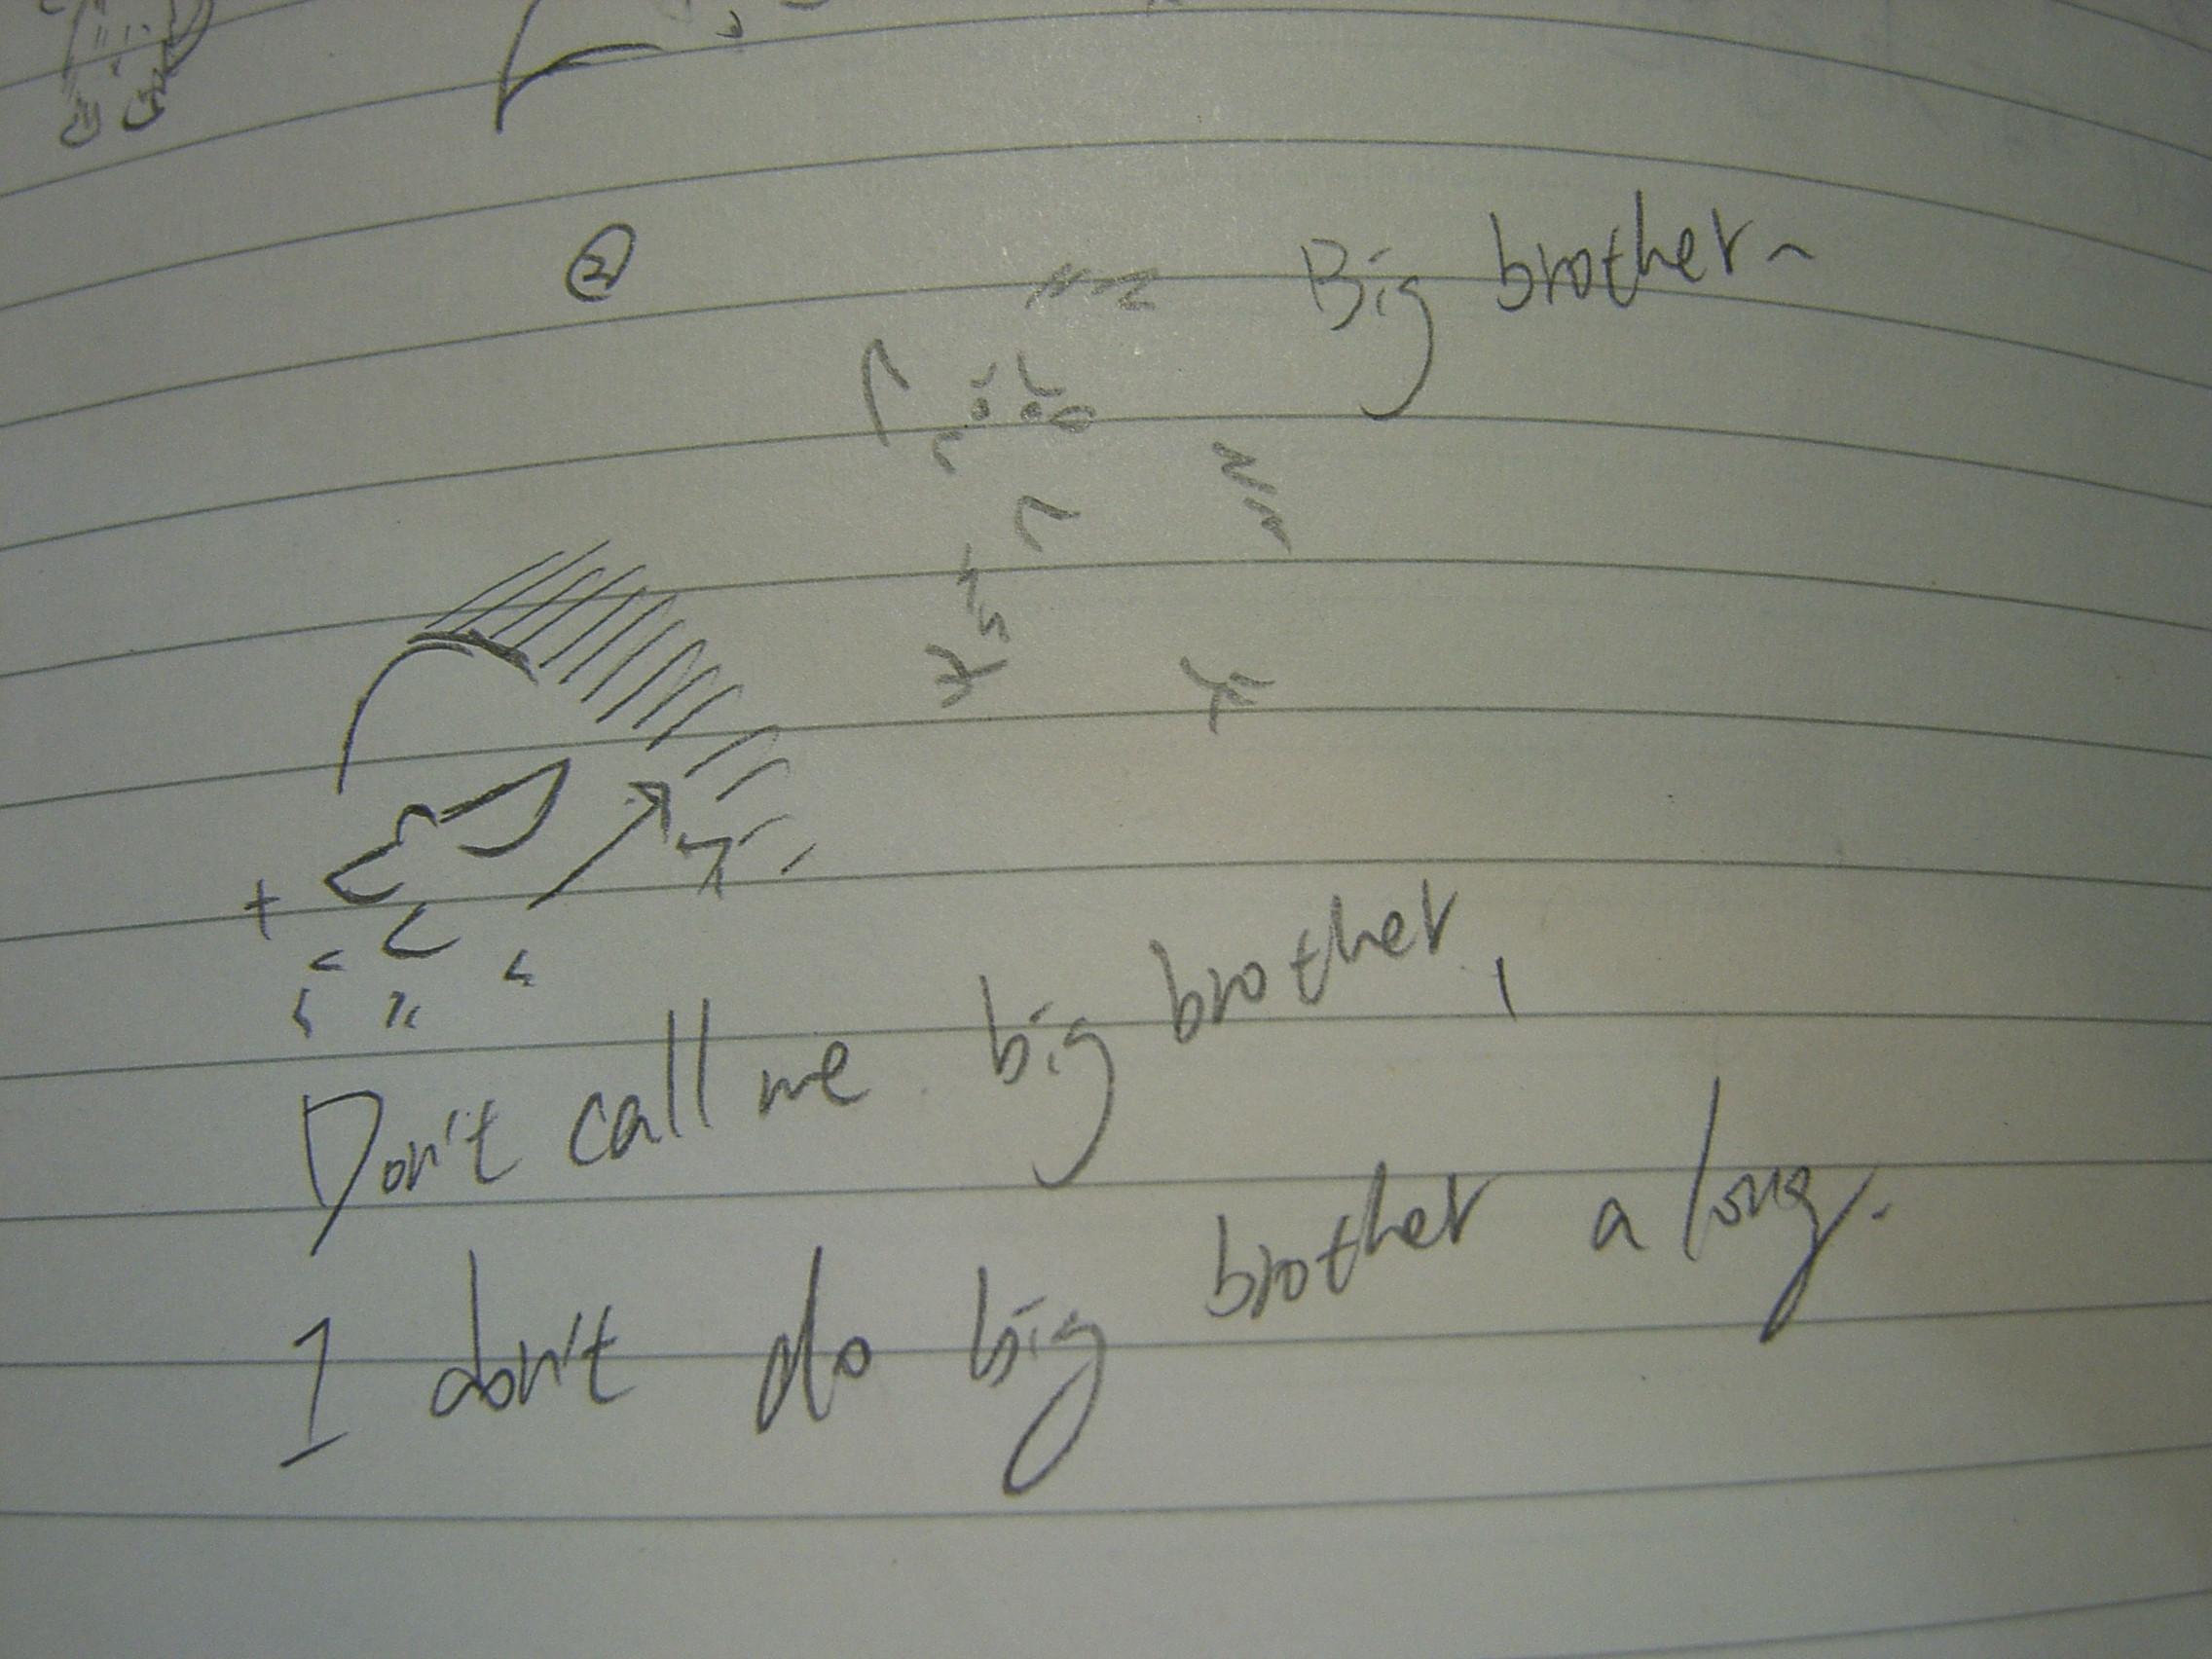 ②
Big brother~
Don't call me big brother,
I don't do big brother a long.